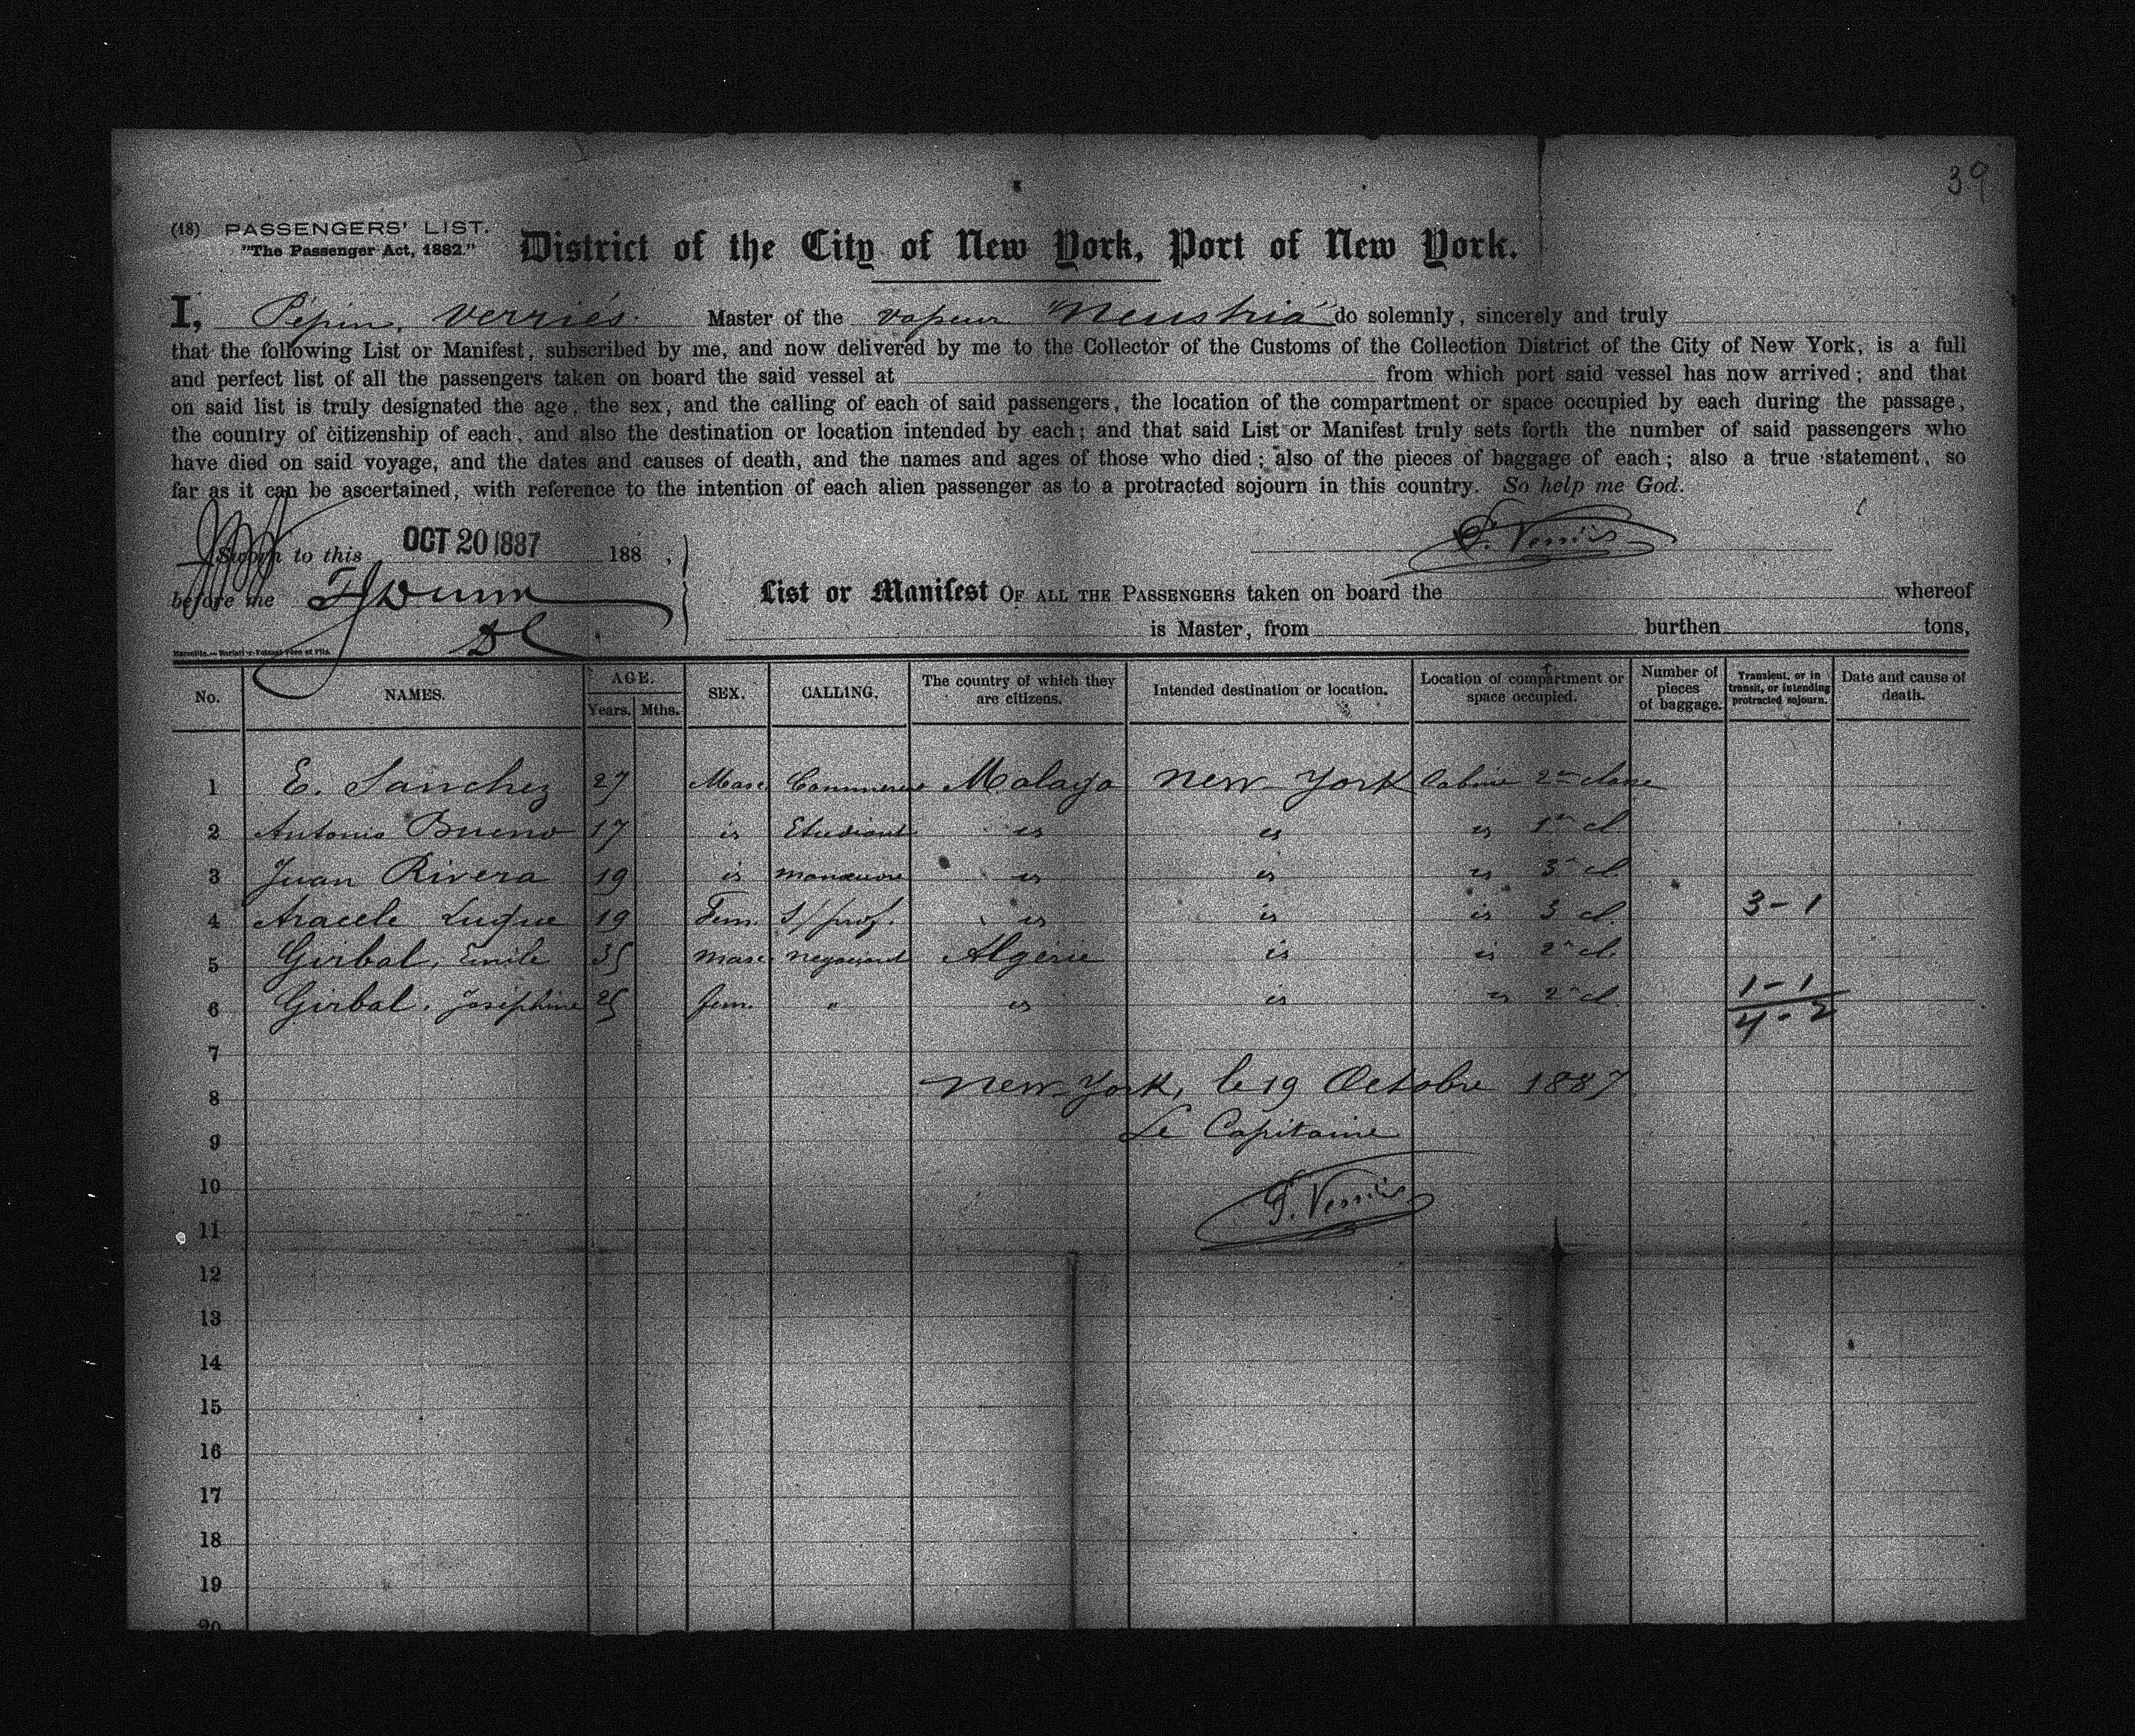 39
(18) PASSENGERS' LIST.
"The Passenger Act, 1882."
District of the City of New York, Port of New York.
I, Pépin, Verriés. Master of the vapeur "Neustria" do solemnly, sincerely and truly
that the following List or Manifest, subscribed by me, and now delivered by me to the Collector of the Customs of the Collection District of the City of New York, is a full
and perfect list of all the passengers taken on board the said vessel at from which port said vessel has now arrived; and that
on said list is truly designated the age, the sex, and the calling of each of said passengers, the location of the compartment or space occupied by each during the passage,
the country of citizenship of each, and also the destination or location intended by each; and that said List or Manifest truly sets forth the number of said passengers who
have died on said voyage, and the dates and causes of death, and the names and ages of those who died; also of the pieces of baggage of each; also a true statement, so
far as it can be ascertained, with reference to the intention of each alien passenger as to a protracted sojourn in this country. So help me God.
Sworn to this OCT 20 1887 188 ,
P. Verriés
before me FJ Dunn
DC
List or Manifest OF ALL THE PASSENGERS taken on board the whereof
is Master, from burthen tons,
No. NAMES. AGE. Years. Mths. SEX. CALLING. The country of which they are citizens. Intended destination or location. Location of compartment or space occupied. Number of pieces of baggage. Transient, or in transit, or intending protracted sojourn. Date and cause of death.
1 E. Sanchez 27 Masc. Commerce Malaga New York Cabine 2me classe
2 Antonio Bueno 17 id Etudiant id id id 1re cl.
3 Juan Rivera 19 id manœuvre id id id 3e cl
4 Aracele Luque 19 Fem. S/ prof. id id id 3 cl. 3-1
5 Girbal, Emile 35 masc. negociant Algérie id id 2e cl.
6 Girbal, Joséphine 25 fem. " id id id 2e cl. 1-1
4-2
7
8 New-York, le 19 Octobre 1887
9 Le Capitaine
10 P. Verriés
11
12
13
14
15
16
17
18
19
20